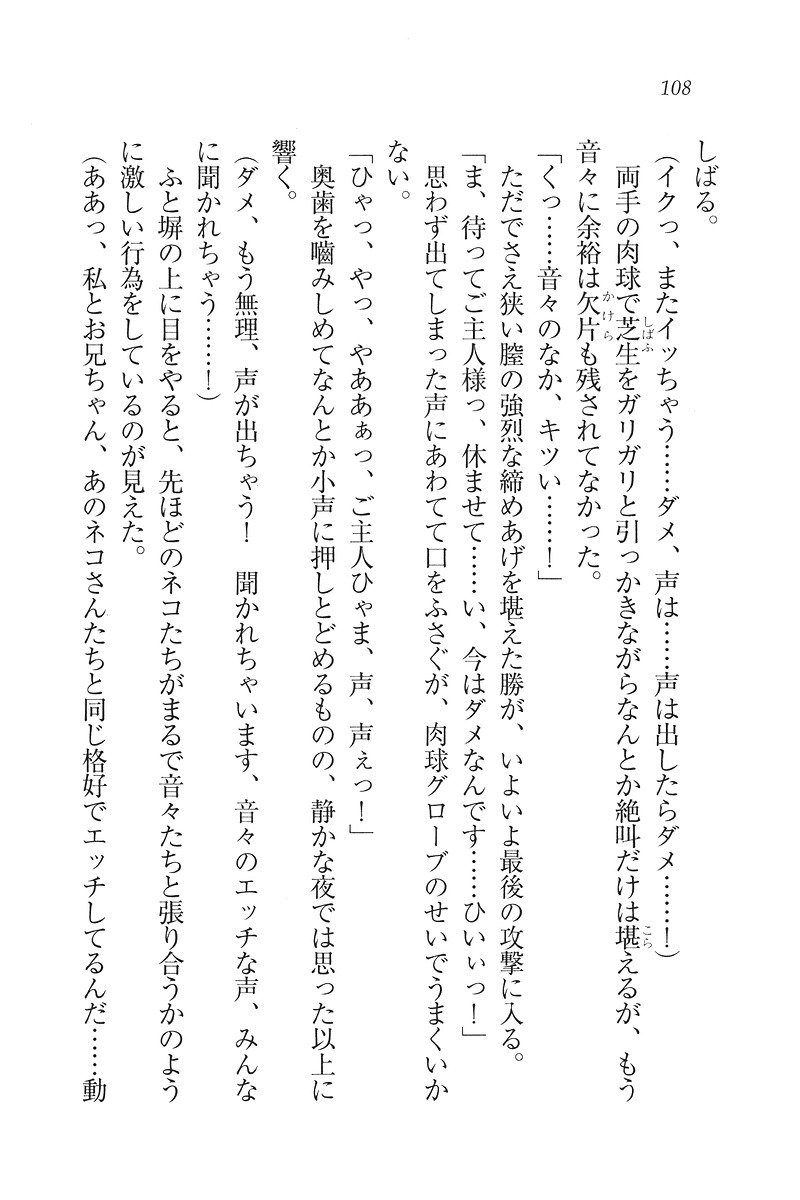 108
しばる。
(イクっ、またイッちゃう……ダメ、声は……声は出したらダメ……!)
両手の肉球で芝生をガリガリと引っかきながらなんとか絶叫だけは堪えるが、もう
音々に余裕は欠片も残されてなかった。
「くっ……音々のなか、キツい……!」
ただでさえ狭い膣の強烈な締めあげを堪えた勝が、いよいよ最後の攻撃に入る。
「ま、待ってご主人様っ、休ませて……い、今はダメなんです……ひいぃっ!」
思わず出てしまった声にあわてて口をふさぐが、肉球グローブのせいでうまくいか
ない。
「ひゃっ、やっ、やああぁっ、ご主人ひゃま、声、声ぇっ!」
奥歯を嚙みしめてなんとか小声に押しとどめるものの、静かな夜では思った以上に
響く。
(ダメ、もう無理、声が出ちゃう! 聞かれちゃいます、音々のエッチな声、みんな
に聞かれちゃう……!)
ふと塀の上に目をやると、先ほどのネコたちがまるで音々たちと張り合うかのよう
に激しい行為をしているのが見えた。
(ああっ、私とお兄ちゃん、あのネコさんたちと同じ格好でエッチしてるんだ……動